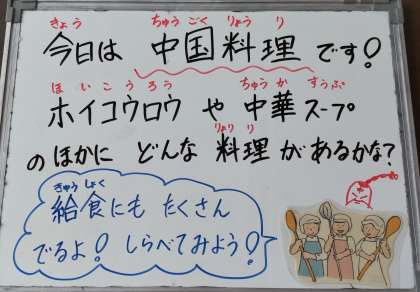 きょう ちゅうごくりょうり
今日は 中国料理 です!
ほいこうろう ちゅうか すうぷ
ホイコウロウ や 中華スープ
りょうり
のほかに どんな 料理 があるかな?
きゅうしょく
給食にも たくさん
でるよ! しらべてみよう!